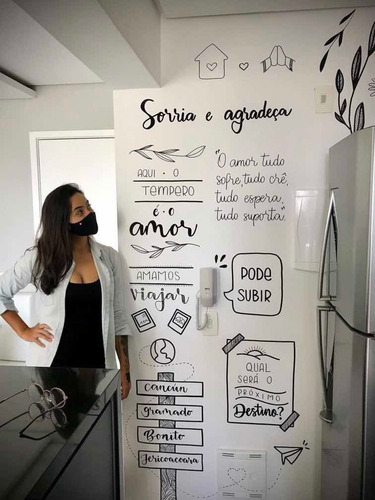 Sorria e agradeça
AQUI • O
TEMPERO
é • o
amor
"O amor tudo
sofre, tudo crê,
tudo espera,
tudo suporta."
AMAMOS
viajar
PODE
SUBIR
QUAL
SERÁ O
PRÓXIMO
Destino?
Cancún
Gramado
Bonito
Jericoacoara